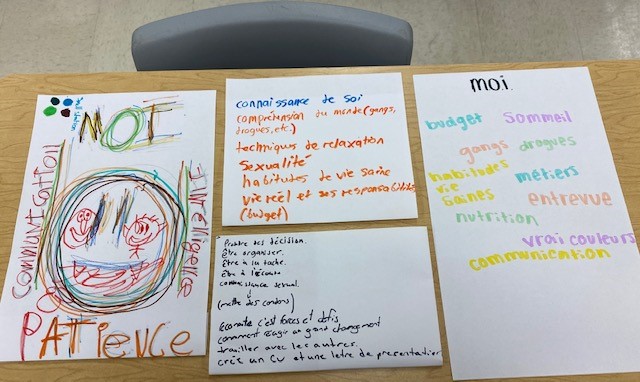 MOI
Communication
Intelligence
PATIENCE
connaissance de soi
compréhension du monde (gangs,
drogues, etc.)
techniques de relaxation
sexualité
habitudes de vie saine
vie réel et ses responsabilités
(budget)
Prendre des décision.
Être organiser.
Être à la tache.
Être à l'écoute
connaissance sexual.
(mettre des condons)
c'est forces et défis
comment réagir au grand changement
travailler avec les autres.
créé un CV et une lettre de presentation
moi.
budget
Sommeil
gangs
drogues
habitudes
vie
saines
métiers
entrevue
nutrition
vrai couleurs
communication